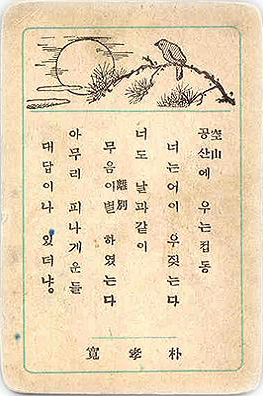 空山
공산에 우는접동
너는어이 우짖는다
너도 날과같이
離別
무음이별 하였는다
아무리 피나게운들
대답이나 있더냥
朴孝寬